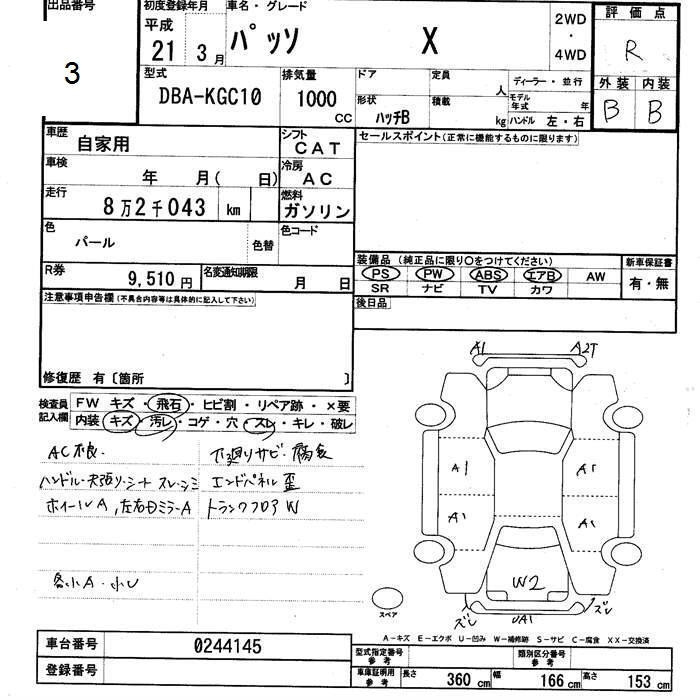 出品番号 初度登録年月 車名・グレード 評価点
3
平成 21 3月 パッソ X 2WD・4WD R
型式 排気量 ドア 定員 人 ディーラー・並行 外装 内装
DBA-KGC10 1000 CC 形状 ハッチB 積載 kg モデル年式 年 ハンドル 左・右 B B
車歴 自家用 シフト CAT セールスポイント(正常に機能するものに限ります)
車検 年 月( 日) 冷房 AC
走行 8万2千043 km 燃料 ガソリン
色 パール 色替 色コード
装備品 (純正品に限り〇をつけてください) 新車保証書
PS PW ABS エアB AW 有・無
SR ナビ TV カワ
R券 9,510円 名変通知期限 月 日
後日品
注意事項申告欄(不具合内容等は具体的に記入して下さい)
修復歴 有〔箇所 〕
検査員記入欄 FW キズ・飛石・ヒビ割・リペア跡・×要
内装 キズ・汚レ・コゲ・穴・スレ・キレ・破レ
A1 A2T
AC不良. 下廻りサビ・腐食
ハンドル・天張り・シート スレ・シミ エンドパネル歪
ホイールA,左右ドミラーA トランクフロアW
A1 A1
A1 A1
各小A・小U
W2
ズレ UA1 ズレ
スペア
A-キズ E-エクボ U-凹み W-補修跡 S-サビ C-腐食 XX-交換済
車台番号 0244145
登録番号
型式指定番号 参考 類別区分番号 参考
車庫証明用 参考 長さ 360 cm 幅 166 cm 高さ 153 cm